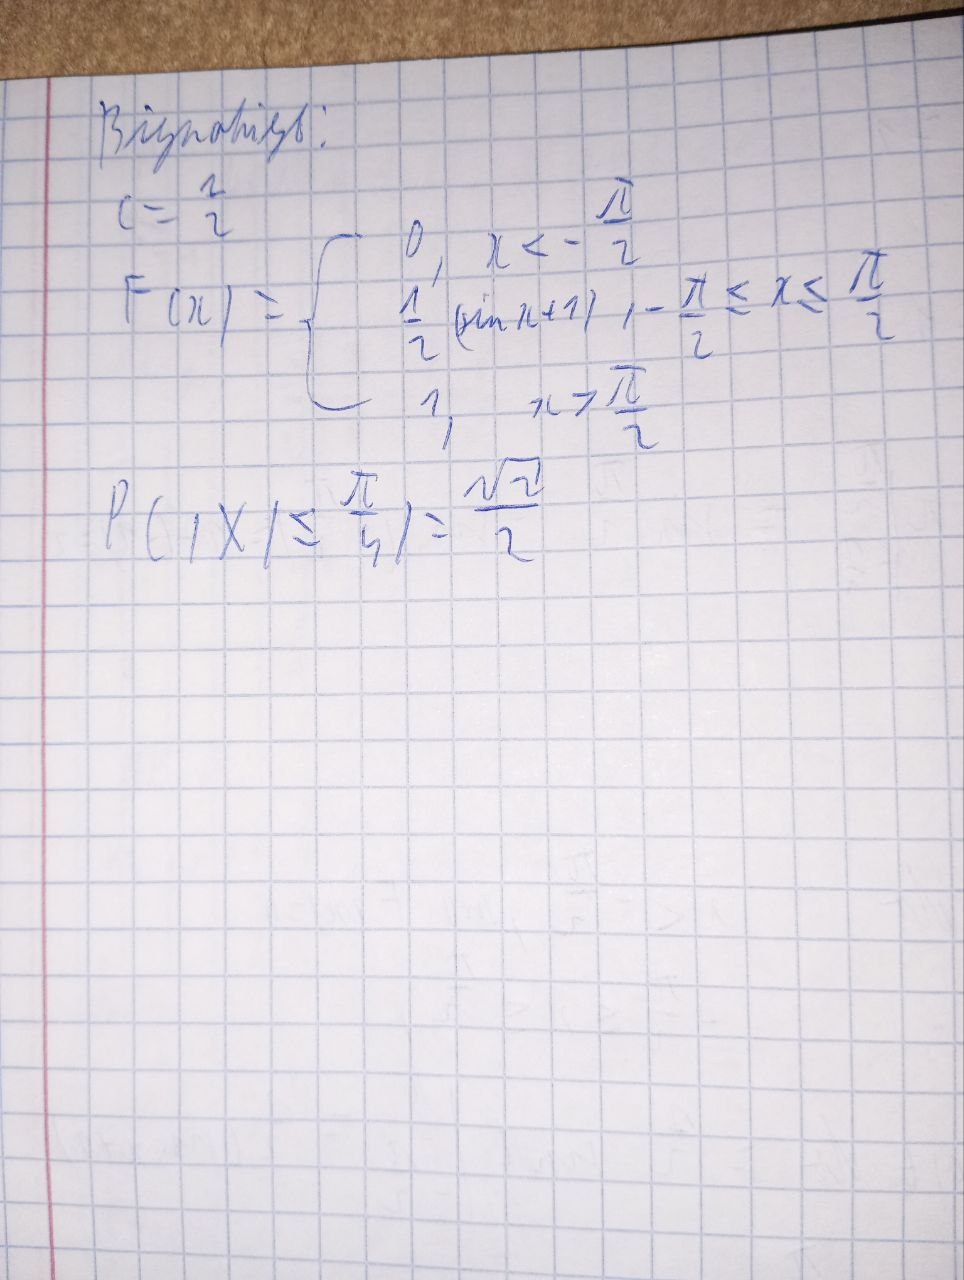 Відповідь:
c = 1/2
F(x) = { 0, x < - π/2
1/2 (sin x+1), - π/2 ≤ x ≤ π/2
1, x > π/2
P(|X| ≤ π/4) = √2/2